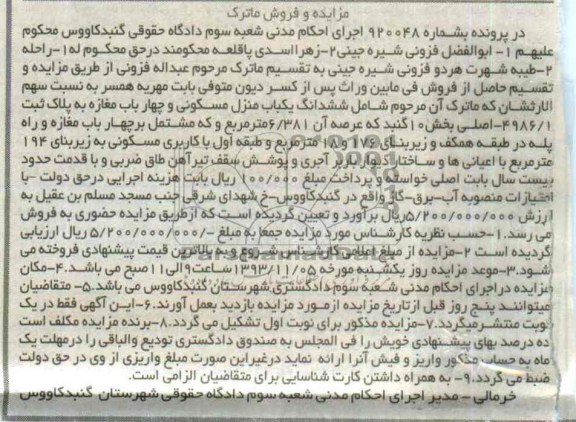 مزایده و فروش ماترک
در پرونده بشماره ۹۲۰۰۴۸ اجرای احکام مدنی شعبه سوم دادگاه حقوقی گنبدکاووس محکوم
علیهم ۱- ابوالفضل فزونی شیره جینی۲-زهرااسدی پاقلعه محکومند درحق محکوم له۱-راحله
۲-طیبه شهرت هردو فزونی شیره جینی به تقسیم ماترک مرحوم عبداله فزونی از طریق مزایده و
تقسیم حاصل از فروش فی مابین وراث پس از کسر دیون متوفی بابت مهریه همسر به نسبت سهم
الارثشان که ماترک آن مرحوم شامل ششدانگ یکباب منزل مسکونی و چهار باب مغازه به پلاک ثبت
۴۹۸۶/۱-اصلی بخش۱۰گنبد که عرصه آن ۶/۳۸۱مترمربع و که مشتمل برچهار باب مغازه و راه
پله در طبقه همکف و زیربنای ۱۷۶و۱۸ مترمربع و طبقه اول با کاربری مسکونی به زیربنای ۱۹۴
مترمربع با اعیانی ها و ساختار دیوار باربر آجری و پوشش سقف تیرآهن طاق ضربی و با قدمت حدود
بیست سال بابت اصلی خواسته و پرداخت مبلغ ۱۰۰/۰۰۰ ریال بابت هزینه اجرایی درحق دولت -با
امتیازات منصوبه آب-برق-گاز واقع در گنبدکاووس-خ شهدای شرقی جنب مسجد مسلم بن عقیل به
ارزش ۵/۲۰۰/۰۰۰/۰۰۰ریال برآورد و تعیین گردیده است که از طریق مزایده حضوری به فروش
می رسد.۱-حسب نظریه کارشناس مورد مزایده جمعا به مبلغ -/۵/۲۰۰/۰۰۰/۰۰۰ ریال ارزیابی
گردیده است ۲-مزایده از مبلغ اعلامی کارشناس شروع و به بالاترین قیمت پیشنهادی فروخته می
شود.۳-موعد مزایده روز یکشنبه مورخه ۱۳۹۳/۱۱/۰۵ساعت۹الی۱۱صبح می باشد.۴-مکان
مزایده دراجرای احکام مدنی شعبه سوم دادگستری شهرستان گنبدکاووس می باشد.۵- متقاضیان
میتوانند پنج روز قبل ازتاریخ مزایده ازمورد مزایده بازدید بعمل آورند.۶-این آگهی فقط در یک
نوبت منتشرمیگردد.۷-مزایده مذکور برای نوبت اول تشکیل می گردد.۸-برنده مزایده مکلف است
ده درصد بهای پیشنهادی خویش را فی المجلس به صندوق دادگستری تودیع والباقی را درمهلت یک
ماه به حساب مذکور واریز و فیش آنرا ارائه نماید درغیراین صورت مبلغ واریزی از وی در حق دولت
ضبط می گردد.۹- به همراه داشتن کارت شناسایی برای متقاضیان الزامی است.
خرمالی - مدیر اجرای احکام مدنی شعبه سوم دادگاه حقوقی شهرستان گنبدکاووس